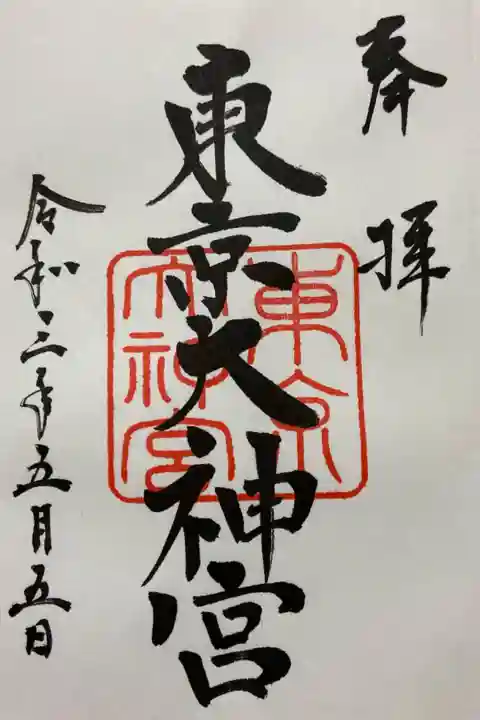 奉拝
東京大神宮
東京
大神宮
令和三年五月五日